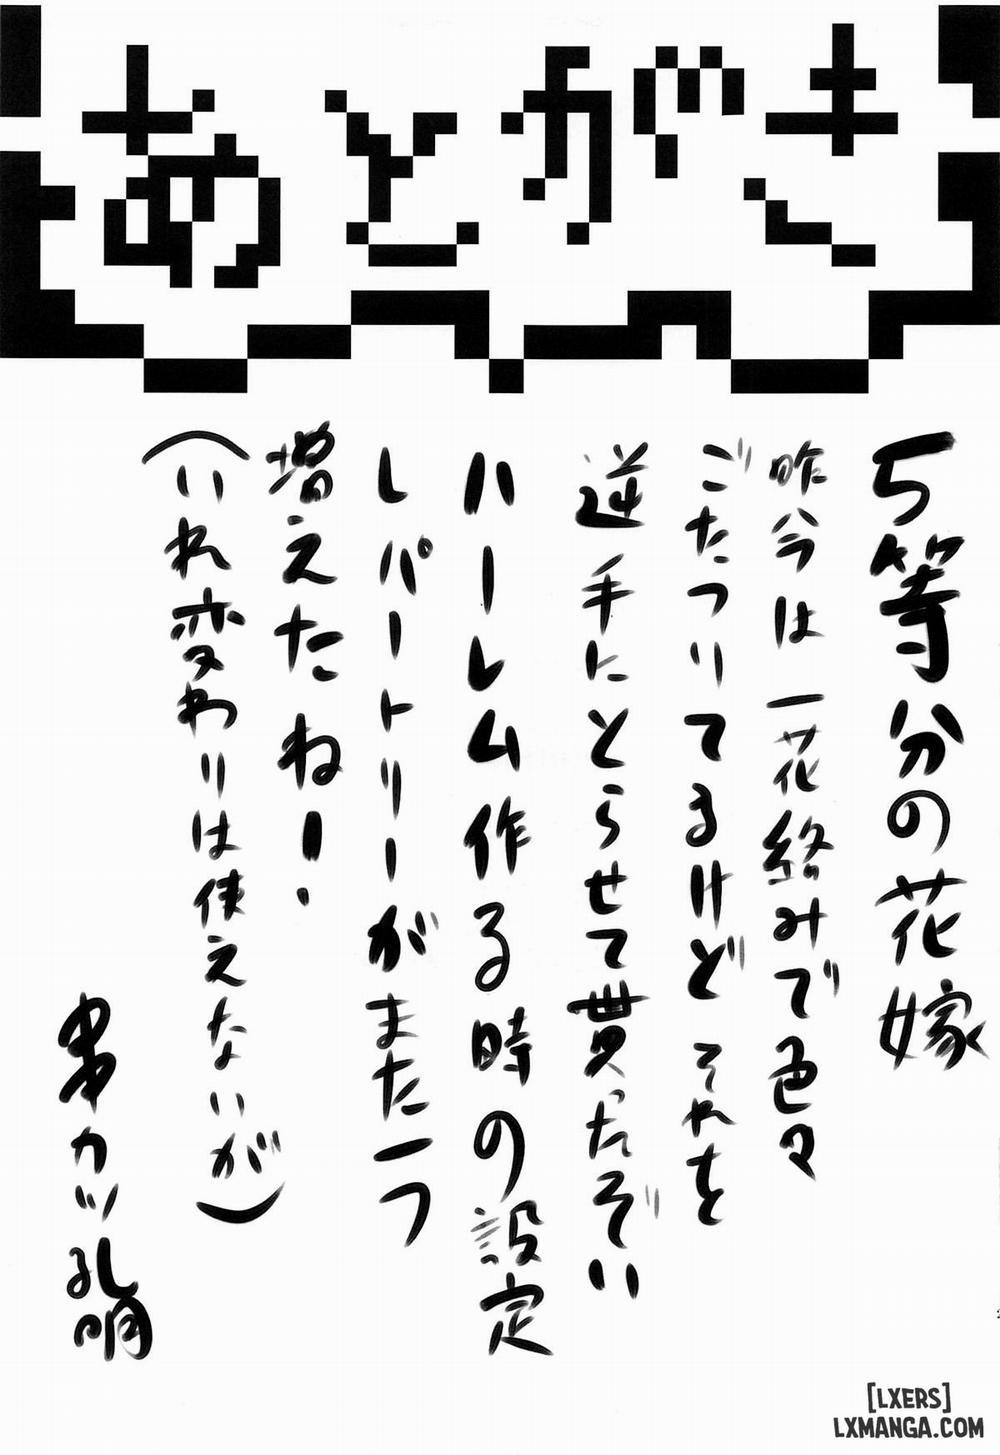 あとがき
5等分の花嫁
昨今は一花絡みで色々
ごたついてるけど それを
逆手にとらせて貰ったぞい
ハーレム作る時の設定
レパートリーがまた一つ
増えたねー.
(いれ変わりは使えないが)
串カツ孔明
[LXERS]
LXMANGA.COM